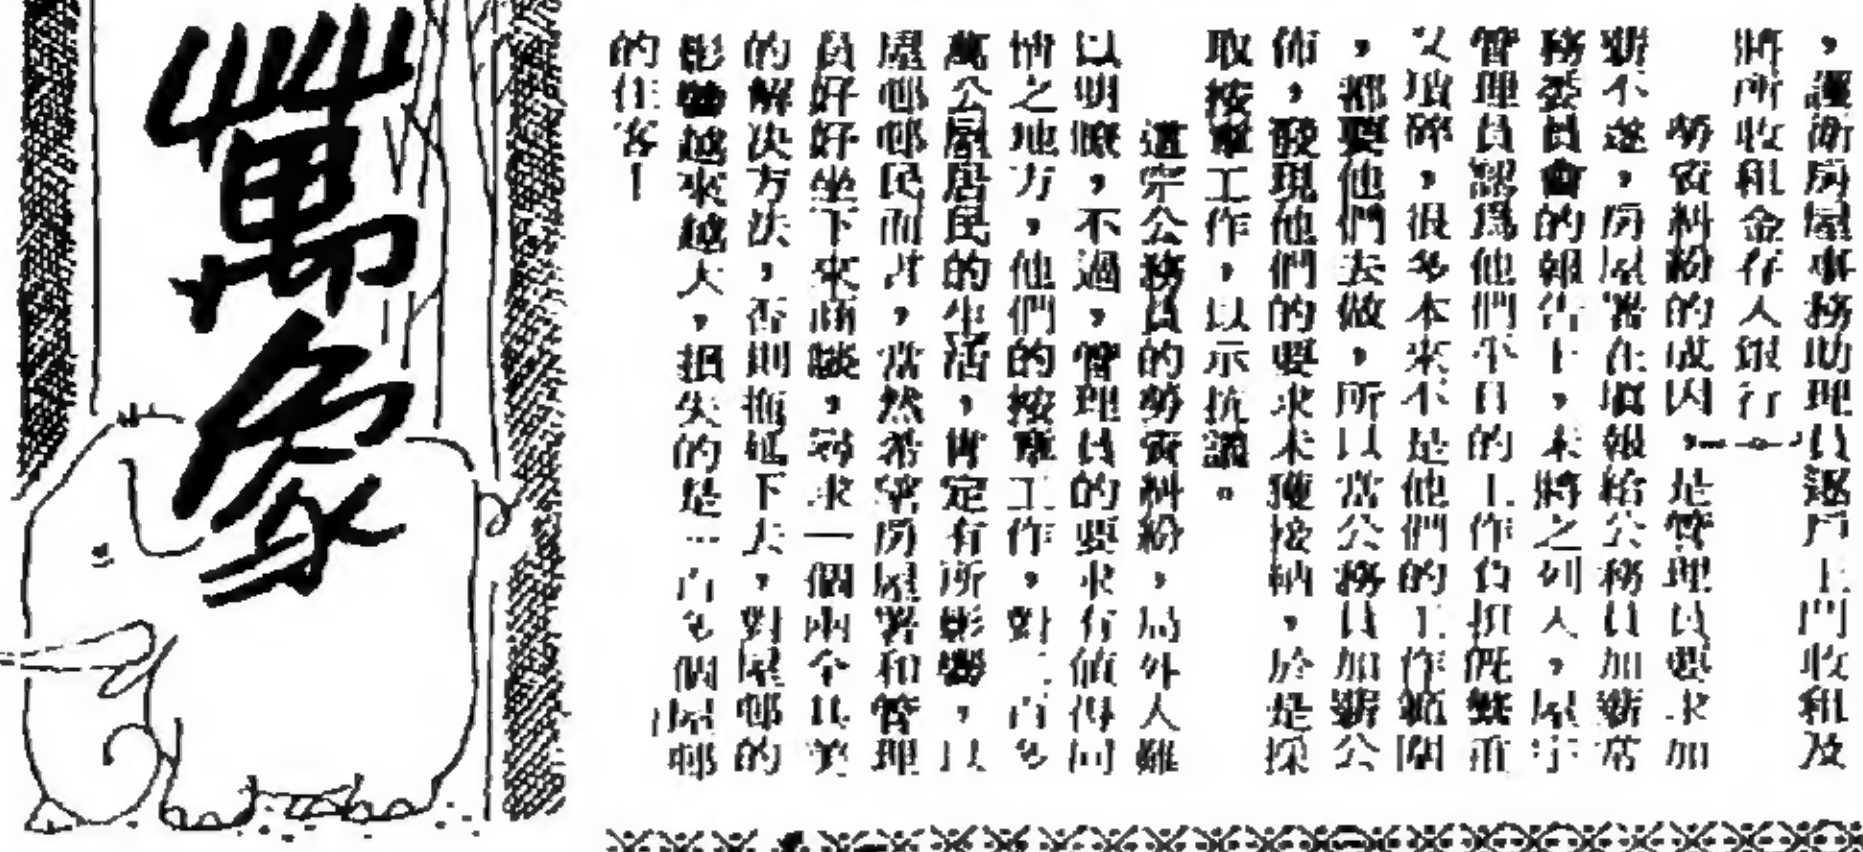 萬象
，護衛房屋事務助理員逐戶上門收租及
將所收租金存入銀行
勞資糾紛的成因，是管理員要求加
薪不遂，房屋署在填報給公務員加薪常
務委員會的報告上，未將之列入，屋宇
管理員認為他們平日的工作負担既繁重
又瑣碎，很多本來不是他們的工作範圍
，都要他們去做，所以當公務員加薪公
佈，發現他們的要求未獲接納，於是採
取按章工作，以示抗議。
這宗公務員的勞資糾紛，局外人難
以明瞭，不過，管理員的要求有值得同
情之地方，他們的按章工作，對二百多
萬公屋居民的生活，肯定有所影響，以
屋邨邨民而言，當然希望房屋署和管理
員好好坐下來商談，尋求一個兩全其美
的解決方法，否則拖延下去，對屋邨的
影響越來越大，損失的是二百多個屋邨
的住客！